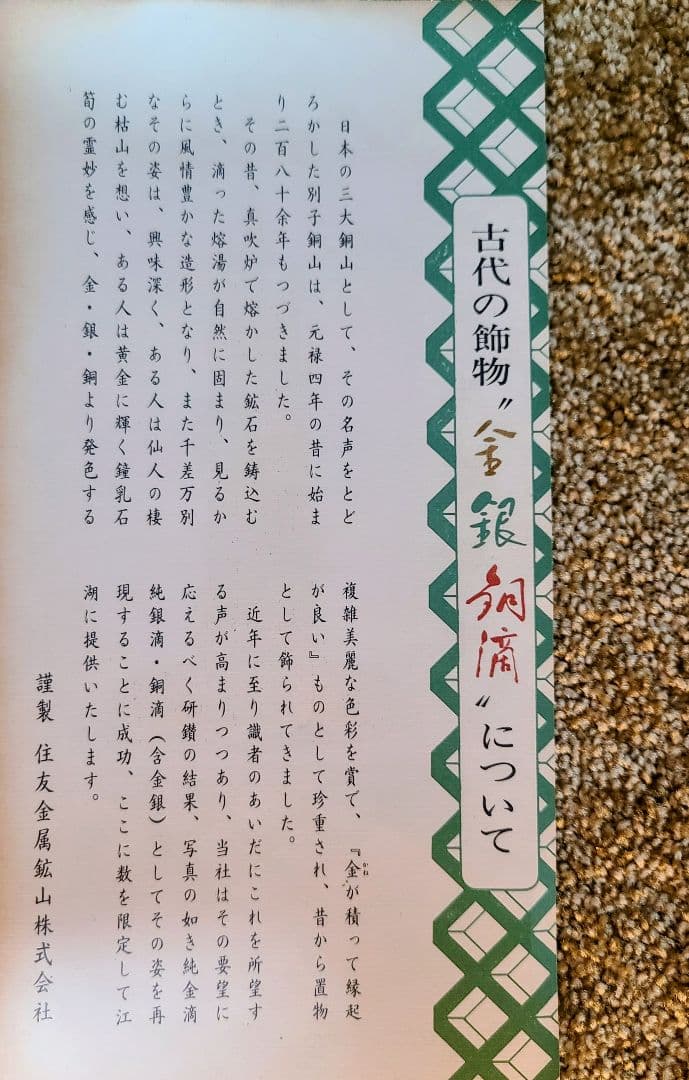 古代の飾物〝金銀銅滴〟について
日本の三大銅山として、その名声をとど
ろかした別子銅山は、元禄四年の昔に始ま
り二百八十余年もつづきました。
その昔、真吹炉で熔かした鉱石を鋳込む
とき、滴った熔湯が自然に固まり、見るか
らに風情豊かな造形となり、また千差万別
なその姿は、興味深く、ある人は仙人の棲
む枯山を想い、ある人は黄金に輝く鐘乳石
筍の霊妙を感じ、金・銀・銅より発色する
複雑美麗な色彩を賞で、『金が積って縁起
かね
が良い』ものとして珍重され、昔から置物
として飾られてきました。
近年に至り識者のあいだにこれを所望す
る声が高まりつつあり、当社はその要望に
応えるべく研鑽の結果、写真の如き純金滴
純銀滴・銅滴（含金銀）としてその姿を再
現することに成功、ここに数を限定して江
湖に提供いたします。
謹製 住友金属鉱山株式会社